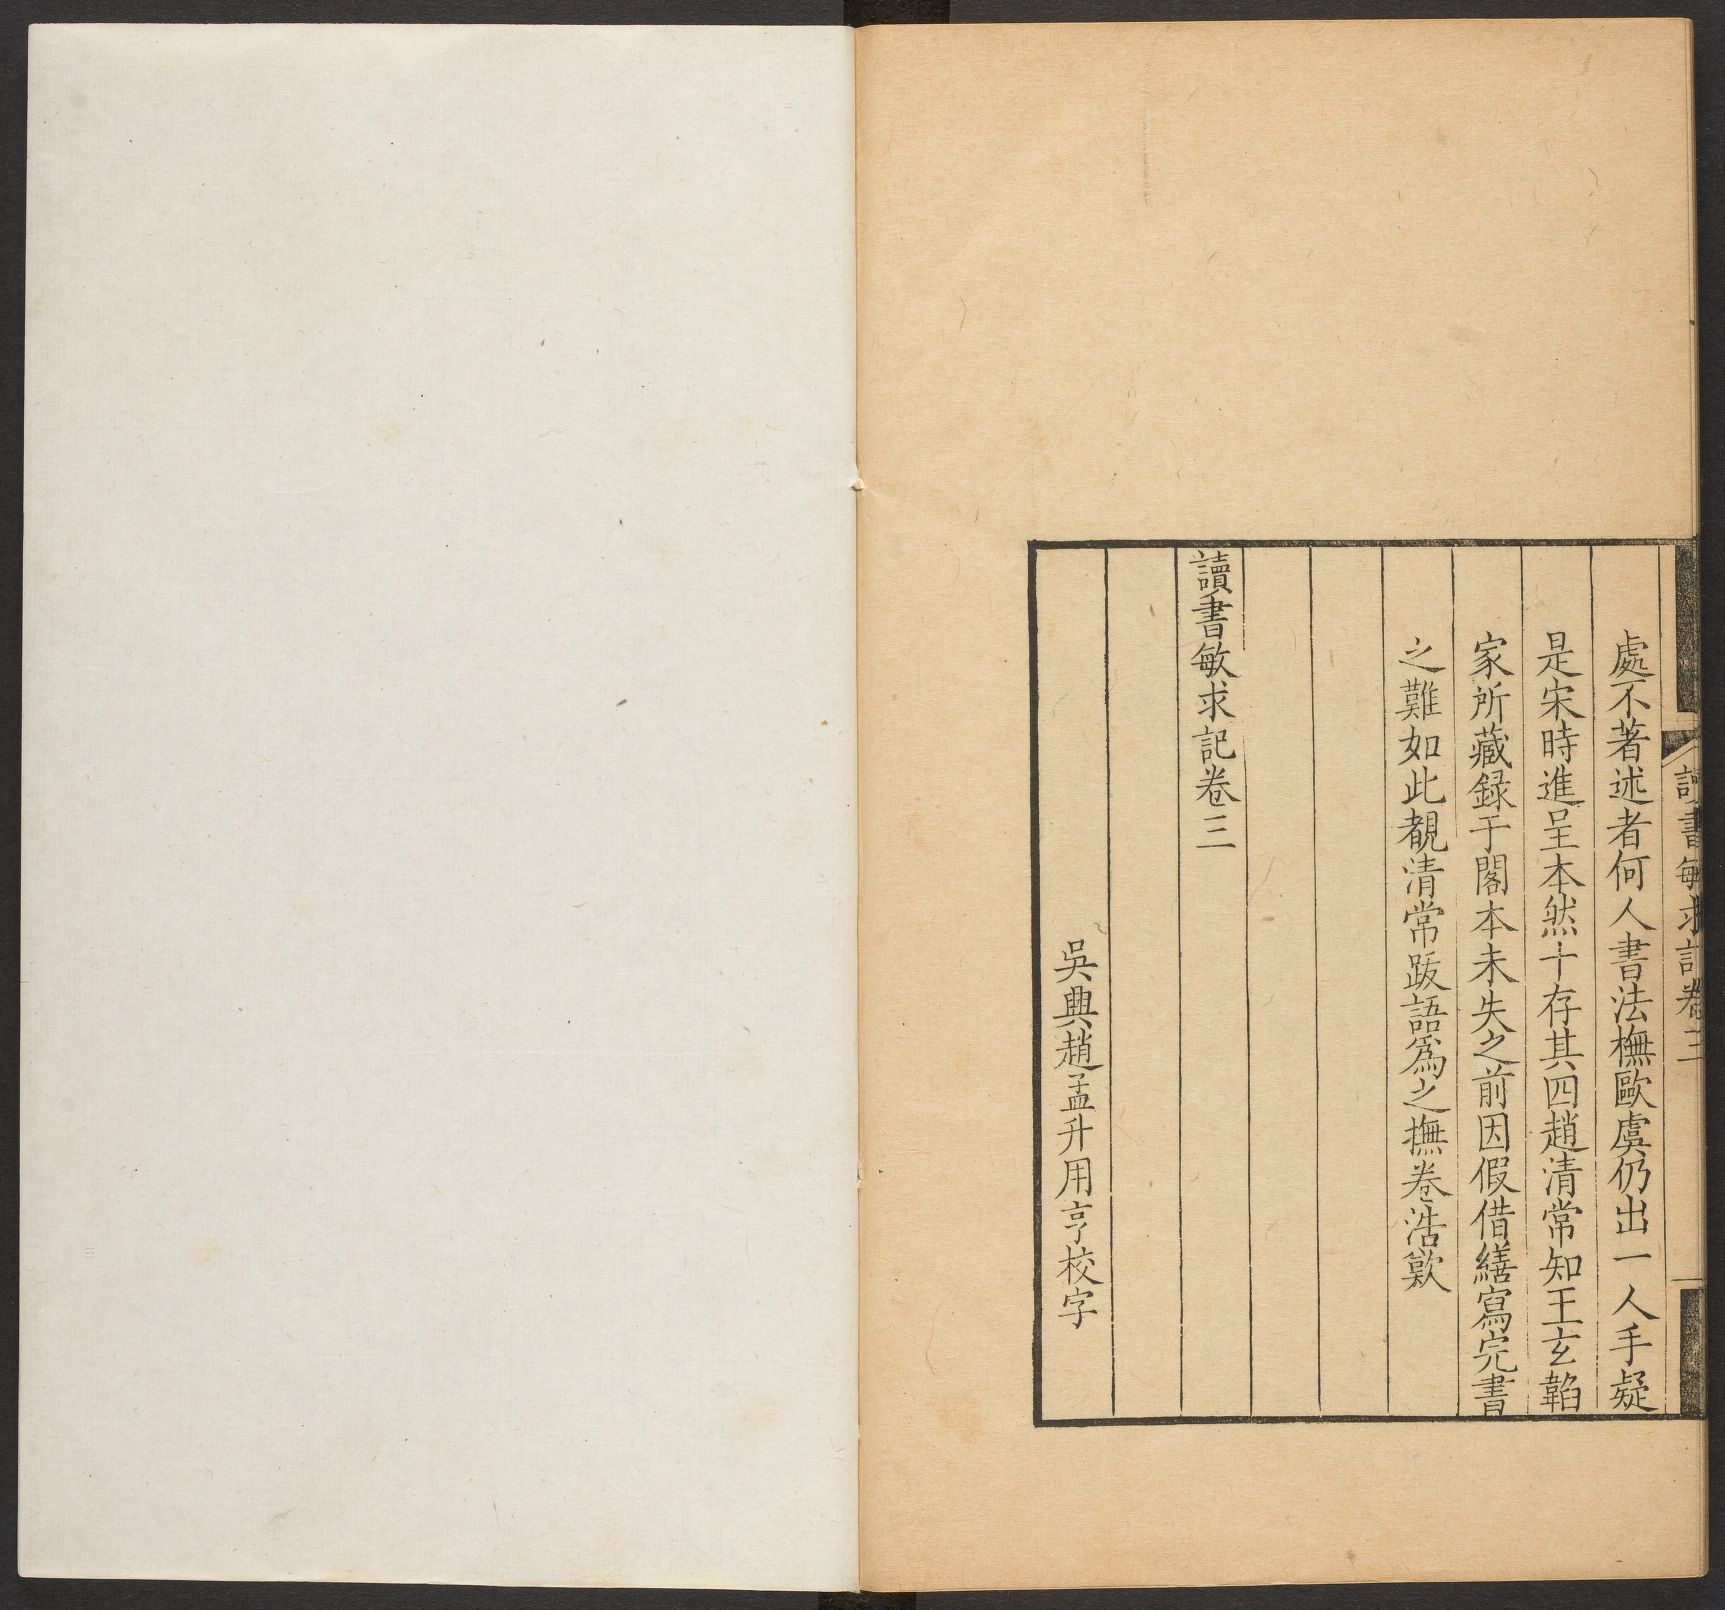 讀書敏求記卷三
處不著述者何人書法橅歐虞仍出一人手疑
是宋時進呈本然十存其四趙清常知王玄韜
家所藏録于閣本未失之前因假借繕寫完書
之難如此覩清常跋語爲之撫卷浩歎
讀書敏求記卷三
吳興趙孟升用亨校字